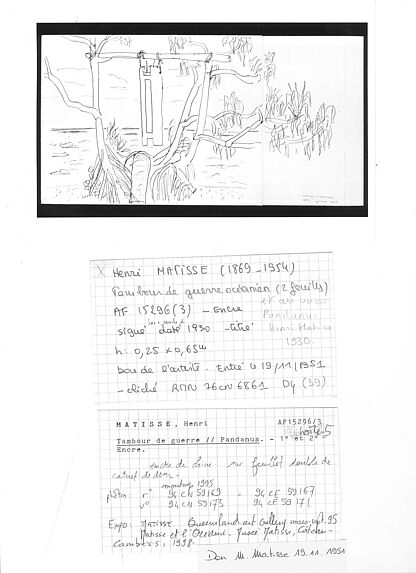 Henri MATISSE (1869-1954)
Tambour de guerre océanien (2 feuilles)
AF 15296(3) - Encre
et au verso
Pandanus
signé daté 1930 - titré
Henri Matisse
1930.
h: 0,25 x 0,65
don de l'artiste. Entré le 19/11/1951
- cliché RMN 76 CN 6861 D4 (39)
MATISSE. Henri AF15296/3
boîte 5
Tambour de guerre // Pandanus. - 1° et 2°
Encre.
encre de Chine sur feuillet double de
carnet de dessin.
montage 1995
photos r° 94 CN 59169 - 94 CE 59167
v° 94 CN 59173 94 CE 59171
Expo: MATISSE. Queensland art Gallery mars-sept. 95
Matisse et l'Océanie. Musée Matisse, Cateau-
Cambrésis, 1998.
Don M. Matisse 19.11.1951